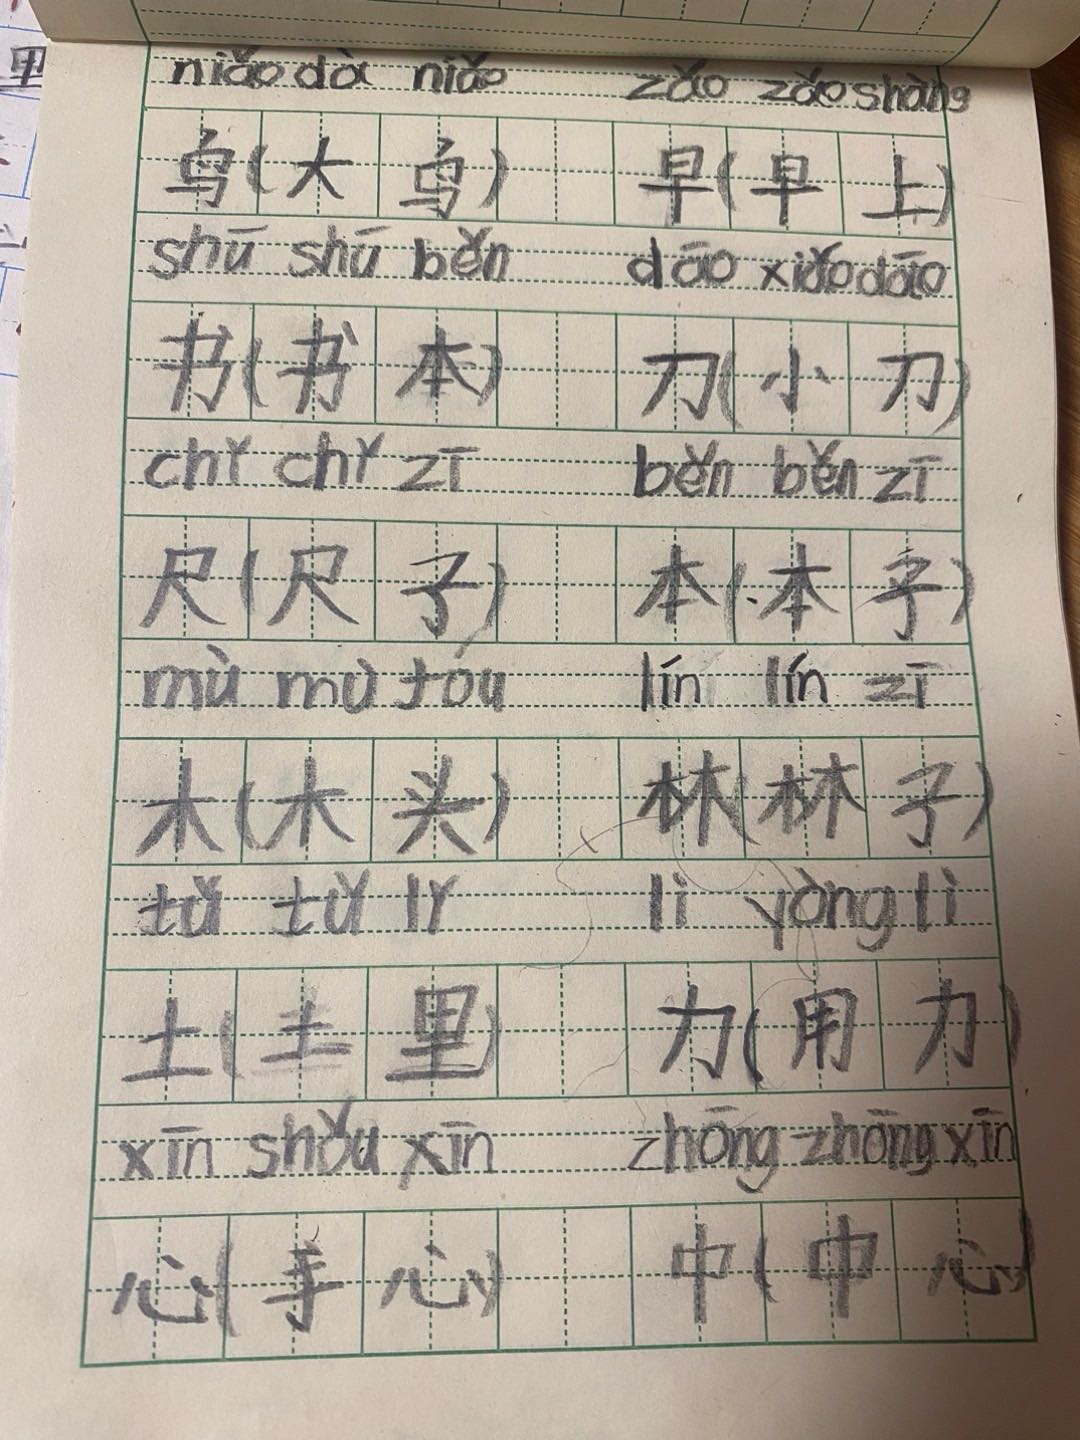 niǎo dà niǎo zǎo zǎo shàng
鸟(大鸟) 早(早上)
shū shū běn dāo xiǎo dāo
书(书本) 刀(小刀)
chǐ chǐ zī běn běn zī
尺(尺子) 本(本子)
mù mù tóu lín lín zī
木(木头) 林(林子)
tǔ tǔ lǐ lì yòng lì
土(土里) 力(用力)
xīn shǒu xīn zhōng zhōng xīn
心(手心) 中(中心)